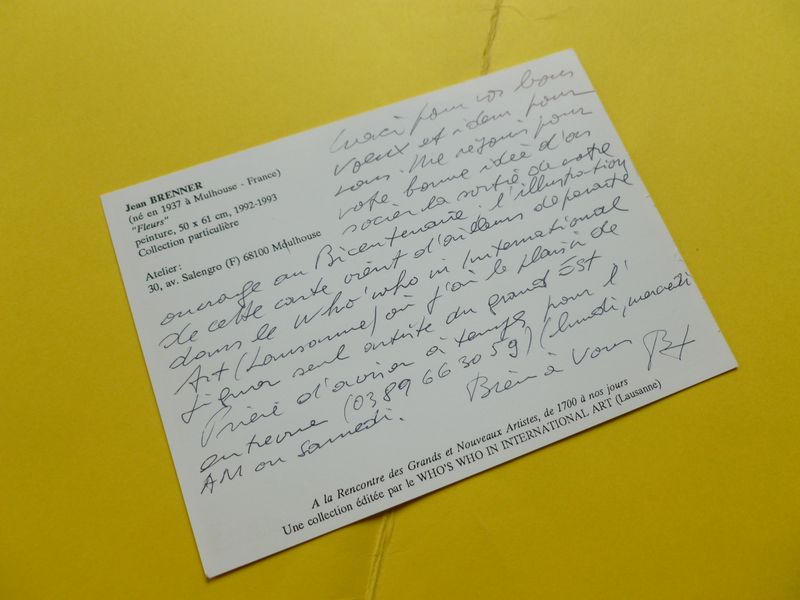 Jean BRENNER
(né en 1937 à Mulhouse - France)
"Fleurs"
peinture, 50 x 61 cm, 1992-1993
Collection particulière
Atelier:
30, av. Salengro (F) 68100 Mulhouse
Merci pour vos bons
voeux et idem pour
vous. Me réjouis pour
votre bonne idée d'as
socier la sortie de votre
ouvrage au Bicentenaire. l'illustration
de cette carte vient d'ailleurs de paraitre
dans le Who'who in International
Art (Lausanne) où j'ai le plaisir de
figurer seul artiste du grand Est
Prière d'aviser à temps pour l'
entrevue (03 89 66 30 59) (lundi, mercredi
AM ou samedi. Bien à vous
A la Rencontre des Grands et Nouveaux Artistes, de 1700 à nos jours
Une collection éditée par le WHO'S WHO IN INTERNATIONAL ART (Lausanne)